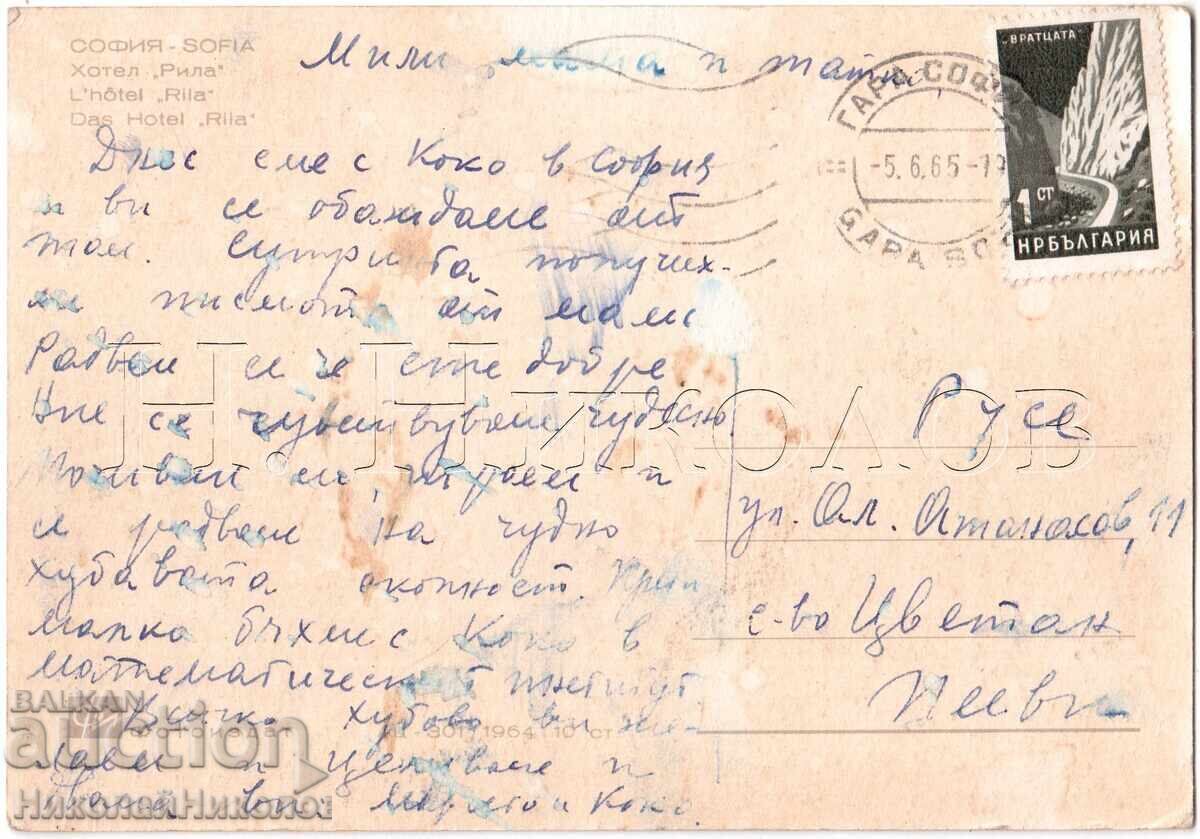 СОФИЯ - SOFIA
Хотел „Рила"
L'hôtel „Rila"
Das Hotel „Rila"
Мили мама и тати
Днес сме с Коко в София
и ви се обаждаме от
там. Сутринта получих-
ме писмото от мами
Радвам се че сте добре
Ние се чувствуваме чудесно.
Почиваме си, играем и
се радваме на чудно
хубавата околност. Преди
малко бяхме с Коко в
математическият институт
Всичко хубаво ви же-
лаем и целуваме и
двама ви и Коко.
Фотоиздат 301 1964 10 ст
ГАРА СОФИЯ
-5.6.65-19
GARA SO
„ВРАТЦАТА"
1 СТ
НР БЪЛГАРИЯ
Русе
ул. Ал. Атанасов, 11
с-во Цветан
Пееви
Н. НИКОЛОВ
BALKAN
auction
НиколайНиколов